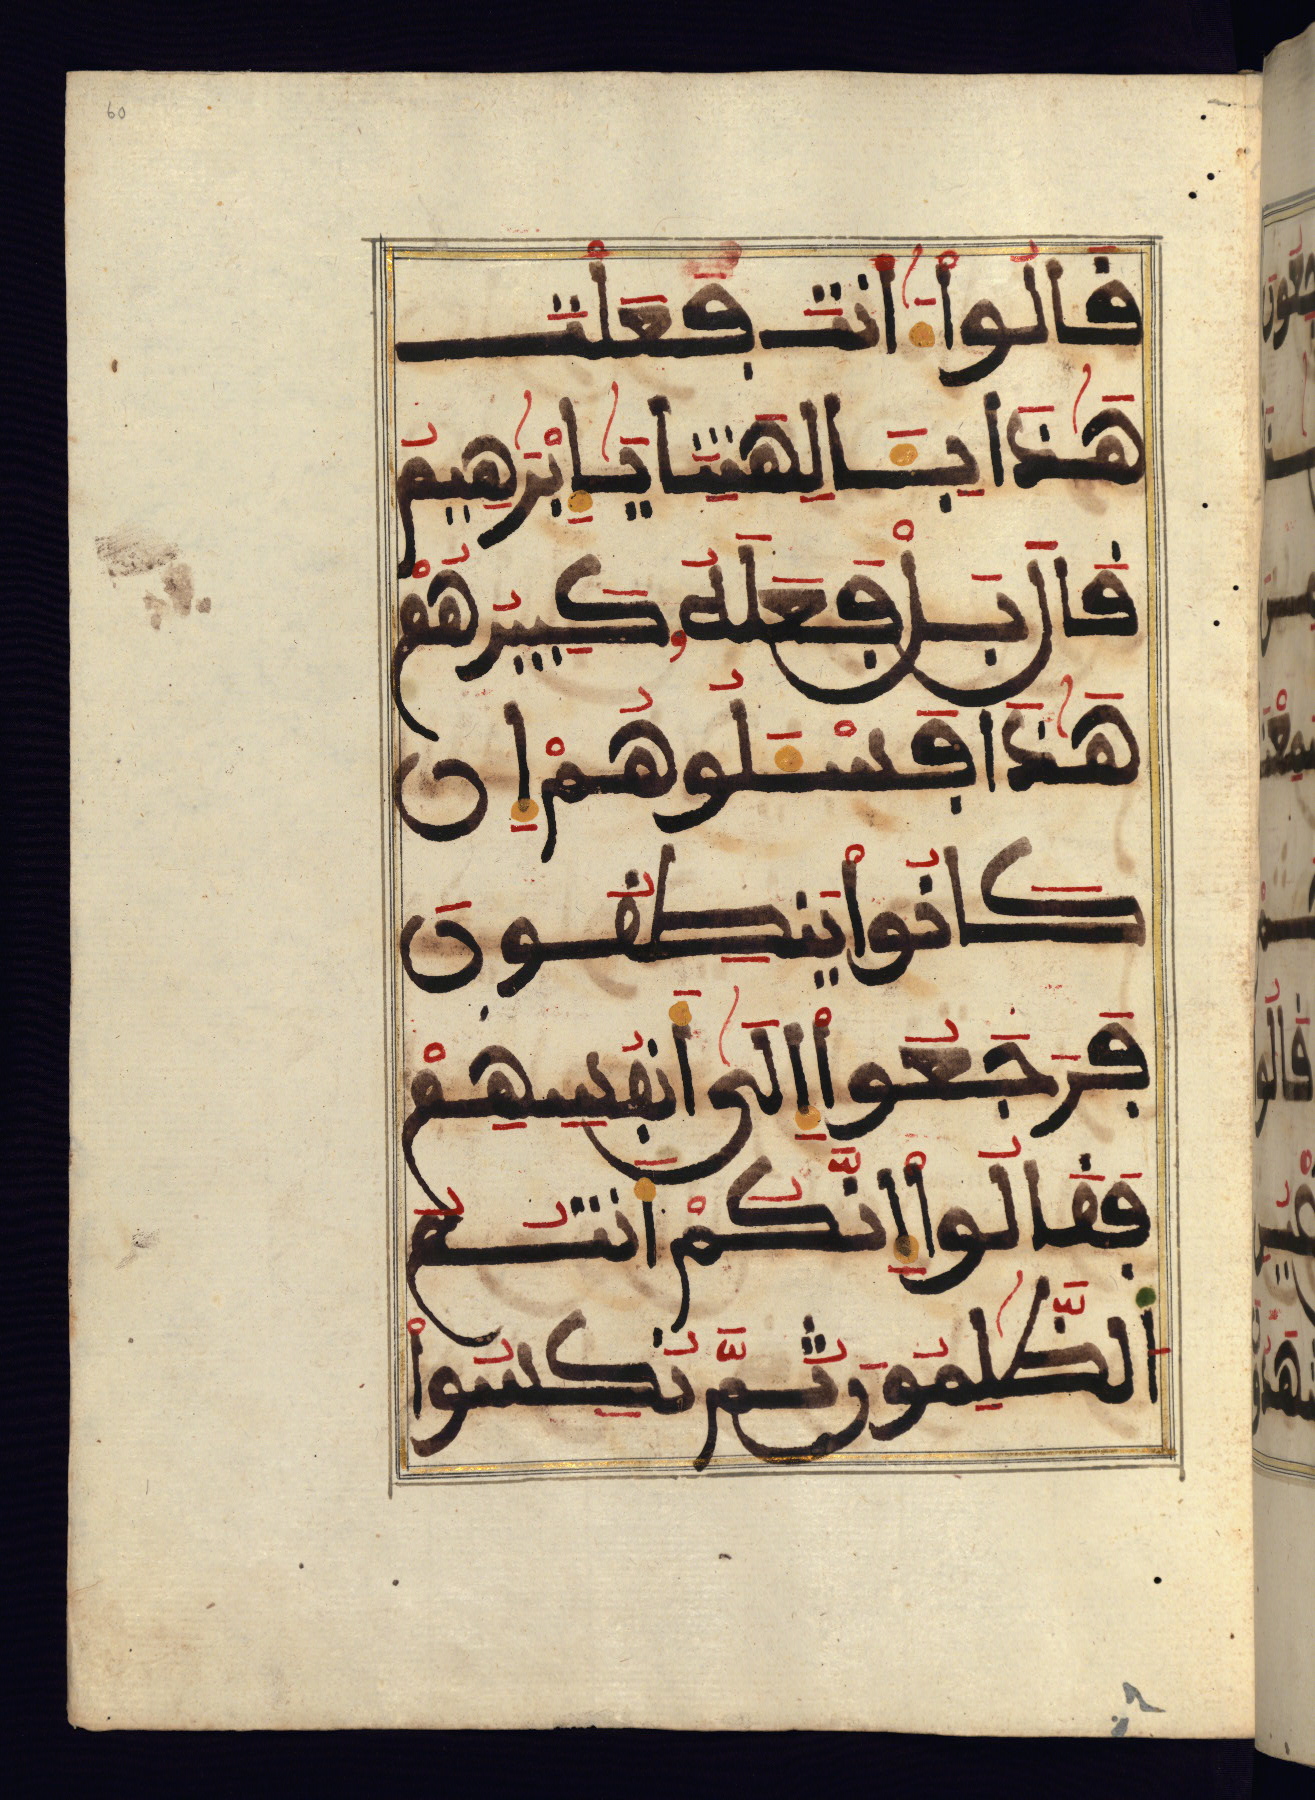 60
قَالُوٓاْ ءَآنتَ فَعَلْتَ
هَٰذَا بِـَٔالِهَتِنَا يَٰٓإِبْرَٰهِيمُ
قَالَ بَلْ فَعَلَهُۥ كَبِيرُهُمْ
هَٰذَا فَسْـَٔلُوهُمْ إِن
كَانُواْ يَنطِقُونَ
فَرَجَعُوٓاْ إِلَىٰٓ أَنفُسِهِمْ
فَقَالُوٓاْ إِنَّكُمْ أَنتُمُ
ٱلظَّٰلِمُونَ ثُمَّ نُكِسُواْ